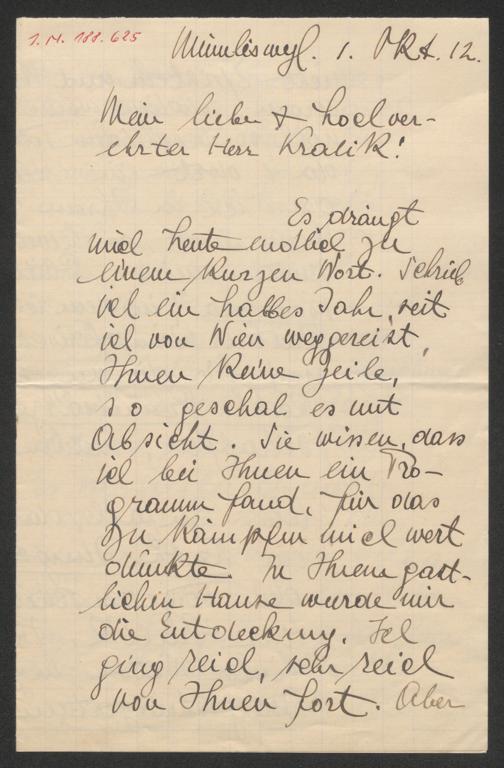 I.N. 188.625
Mümliswyl. 1. Okt. 12.
Mein lieber & hochver-
ehrter Herr Kralik!
Es drängt
mich heute endlich zu
einem kurzen Wort. Schrieb
ich ein halbes Jahr, seit
ich von Wien weggereist,
Ihnen keine Zeile,
so geschah es mit
Absicht. Sie wissen, dass
ich bei Ihnen ein Pro-
gramm fand, für das
zu kämpfen mich wert
dünkte. In Ihrem gast-
lichen Hause wurde mir
die Entdeckung. Ich
ging reich, sehr reich
von Ihnen fort. Aber